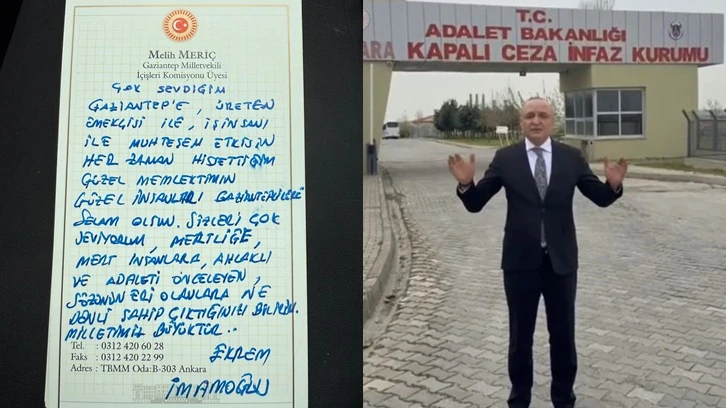 Melih MERİÇ
Gaziantep Milletvekili
İçişleri Komisyonu Üyesi
ÇOK SEVDİĞİM
GAZİANTEP'E, ÜRETEN
EMEKÇİSİ İLE, İŞİNSANI
İLE MUHTEŞEM ETKİSİN
HER ZAMAN HİSSETTİĞİM
GÜZEL MEMLEKTİMİN
GÜZEL İNSANLARI GAZİANTEPLİLERE
SELAM OLSUN. SİZLERİ ÇOK
SEVİYORUM, MERTLİĞE,
MERT İNSANLARA, AHLAKLI
VE ADALETİ ÖNCELEYEN,
SÖZÜNÜN ERİ OLANLARA NE
DENLİ SAHİP ÇIKTIĞINIZI BİLİRİM.
MİLLETİMİZ BÜYÜKTÜR..
EKREM
İMAMOĞLU
Tel. : 0312 420 60 28
Faks : 0312 420 22 99
Adres : TBMM Oda:B-303 Ankara
T.C.
ADALET BAKANLIĞI
ARA KAPALI CEZA İNFAZ KURUMU